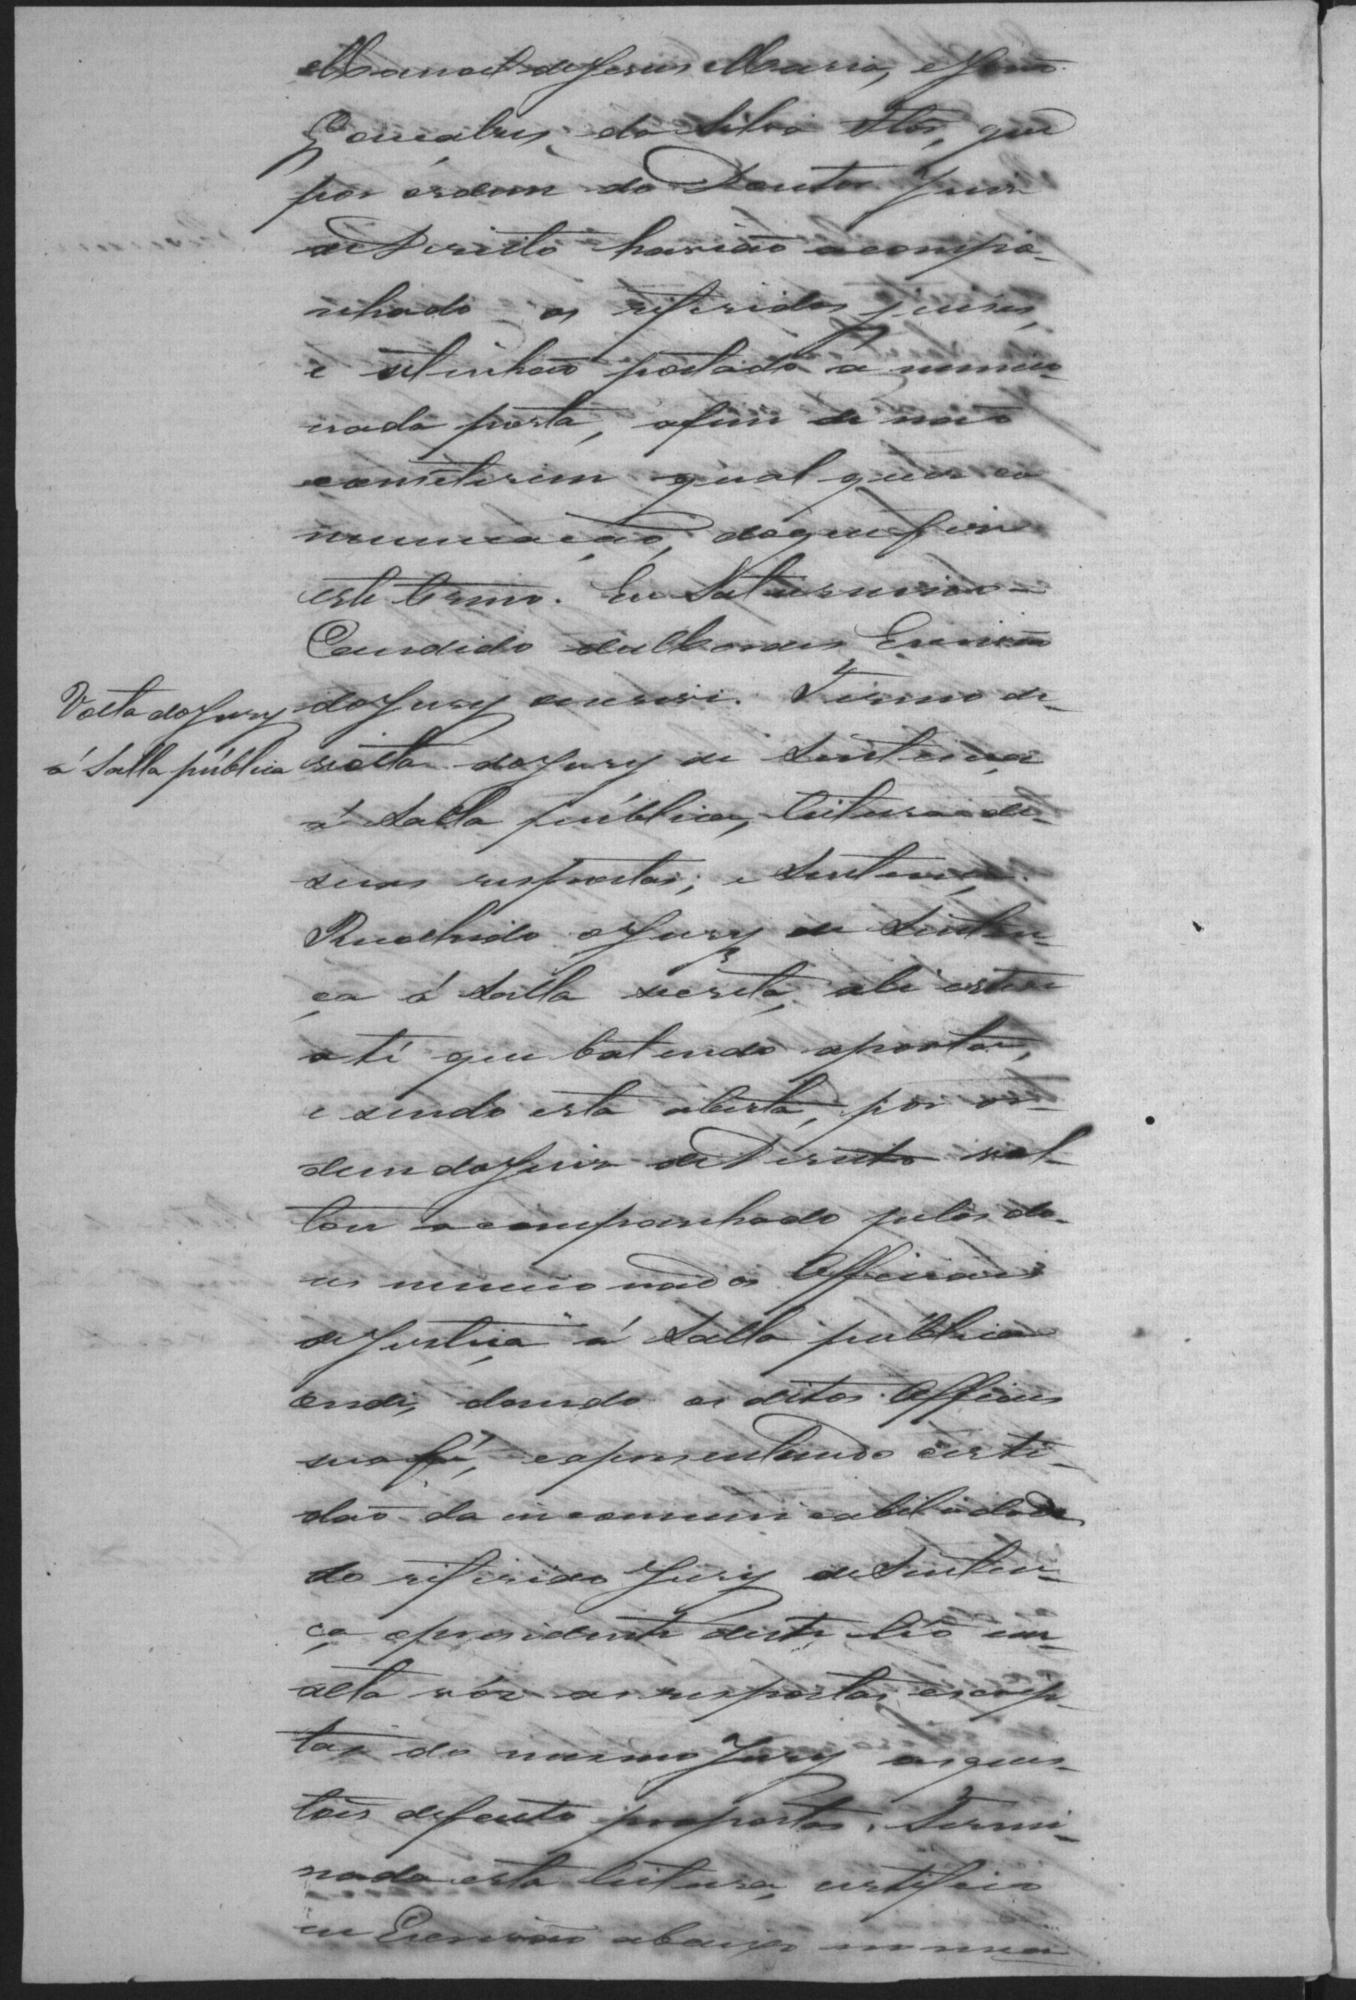 Manoel de Jesus Maria, e João
Gonçalves da Silva que
por órdem do Doutor Juiz
de Direito havião acompa-
nhado os referidos juizes,
e se tinhão postado á mencio-
nada porta, afim de não
cometerem qual quer co
mmunicação, do que fiz
este termo. Eu Saturnino
Candido de Moraes Escrivão
do Jury escrevi. Termo de
Volta do Jury
á Salla pública
volta do Jury de Sentença
á Salla pública, leitura de
suas respostas, e Sentença.
Recolhido o Jury de Senten-
ça á Salla secreta, ali esteve
até que batendo a porta,
e sendo esta aberta, por or-
dem do Juiz de Direito vol-
tou acompanhado pelos do-
us mencionados Officiaes
de Justiça á Salla pública
onde, dando os ditos Officiaes
sua fé, e apresentando certi-
dão da incommunicabilidade
do referido Jury de Senten-
ça o presidente deste léo em
alta vóz as respostas escrip-
tas do mesmo Jury as ques-
tões de facto propostas. Termi-
nada esta leitura, certifico
eu Escrivão abaixo